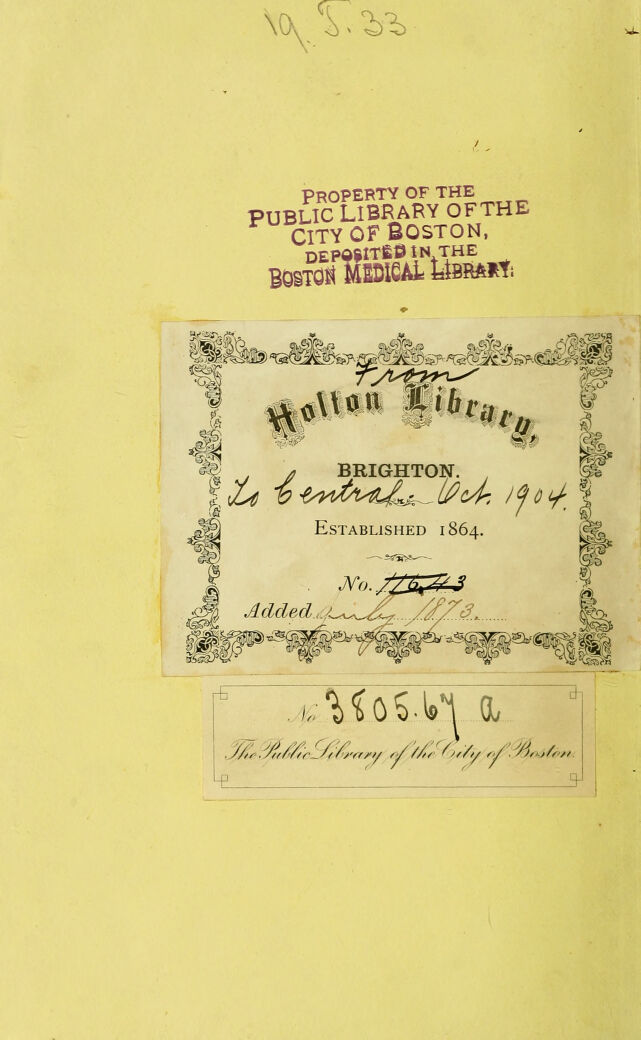 19. T. 33
PROPERTY OF THE
PUBLIC LIBRARY OF THE
CITY OF BOSTON,
DEPOSITED IN THE
BOSTON MEDICAL LIBRARY.
From
Holton Library,
BRIGHTON.
To Central. Oct. 1904.
ESTABLISHED 1864.
No. 11643
Added July 1873.
No 3805.67 a
The Public Library of the City of Boston.